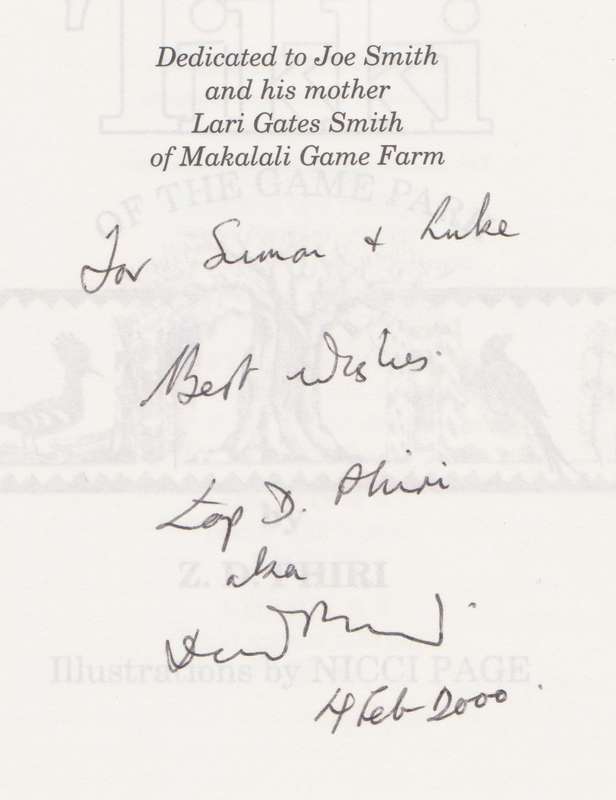 Dedicated to Joe Smith
and his mother
Lari Gates Smith
of Makalali Game Farm
Tikki
OF THE GAME PARK
For Simon + Luke
Best wishes.
Zap D. Phiri
by
aka
Z. D. PHIRI
Illustrations by NICCI PAGE
4 Feb 2000.